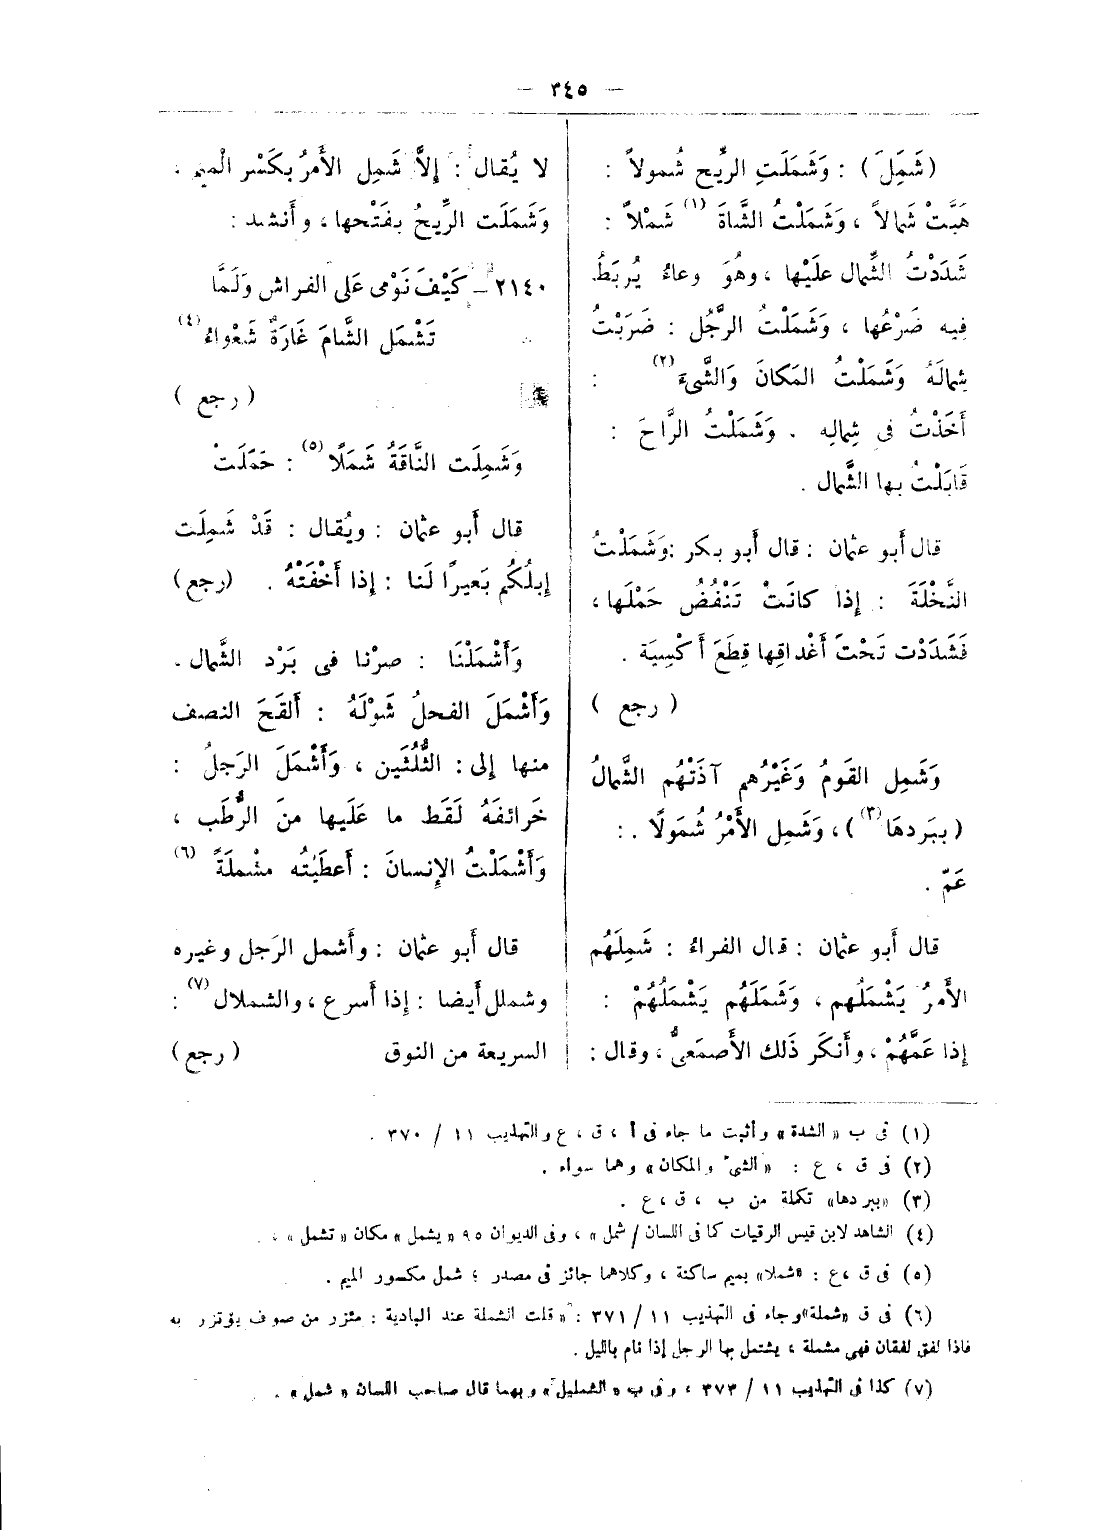 — ٣٤٥ —
(شَمَِلَ) : وَشَمَلَتِ الرِّيح شُمولاً :
هَبَّتْ شَمالاً ، وَشَمَلْتُ الشَّاةَ (١) شَمْلاً :
شَدَدْتُ الشِّمال علَيْها ، وهُوَ وعاءٌ يُربَطُ
فِيه ضَرْعُها ، وَشَمَلْتُ الرَّجُل : ضَرَبْتُ
شِمالَهُ وَشَمَلْتُ المَكانَ وَالشَّىءَ (٢) :
أَخَذْتُ فى شِمالِه . وَشَمَلْتُ الرَّاحَ :
قَابَلْتُ بها الشَّمال .
قال أَبو عثمان : قال أَبو بكر : وَشَمَلْتُ
النَّخْلَةَ : إِذا كانَتْ تَنْفُضُ حَمْلَها ،
فَشَدَدْت تَحْتَ أَعْذاقِها قِطَعَ أَكْسِيَة .
(رجع)
وَشَمِل القَومُ وَغَيْرُهم آذَتْهُم الشَّمالُ
(ببَردهَا (٣)) ، وَشَمِل الأَمْرُ شُمُولًا . :
عَمَّ .
قال أَبو عثمان : قال الفراءُ : شَمِلَهُم
الأَمرُ يَشْمَلُهم ، وَشَمَلَهُم يَشْمُلُهُمْ :
إِذا عَمَّهُمْ ، وأَنكَر ذَلك الأَصمَعىُّ ، وقال :
لا يُقال : إِلاَّ شَمِل الأَمرُ بكَسْر الْميم .
وَشَمَلَت الرِّيحُ بفَتْحها ، وأَنشد :
٢١٤٠ – كَيْفَ نَوْمى عَلى الفراش وَلَمَّا
تَشْمَل الشَّامَ غَارَةٌ شَعْواءُ (٤)
(رجع)
وَشَمِلَت النَّاقَةُ شَمَلًا (٥) : حَمَلَتْ
قال أَبو عثمان : ويُقال : قَدْ شَمِلَت
إِبلُكُم بَعيرًا لَنا : إِذا أَخْفَتْهُ . (رجع)
وَأَشْمَلْنَا : صرْنا فى بَرْد الشَّمال .
وَأَشْمَلَ الفحلُ شَوْلَهُ : أَلقَحَ النصف
منها إِلى : الثُّلُثَين ، وَأَشْمَلَ الرَجلُ :
خَرائفَهُ لَقَط ما عَلَيها منَ الرُّطَب ،
وَأَشْمَلْتُ الإِنسانَ : أَعطَيْتُه مشْملَةً (٦)
قال أَبو عثمان : وأَشمل الرَجل وغيره
وشملل أَيضا : إِذا أَسرع ، والشملال (٧) :
السريعة من النوق (رجع)
(١) فى ب « الشدة » وأثبت ما جاء فى أ ، ق ، ع والتهذيب ١١ / ٣٧٠ .
(٢) فى ق ، ع : « الشئ والمكان » وهما سواء .
(٣) «ببردها» تكملة من ب ، ق ، ع .
(٤) الشاهد لابن قيس الرقيات كما فى اللسان / شمل » ، وفى الديوان ٩٥ « يشمل » مكان « تشمل » ، .
(٥) فى ق ،ع : «شملا» بميم ساكنة ، وكلاهما جائز فى مصدر ؛ شمل مكسور الميم .
(٦) فى ق «شملة» وجاء فى التهذيب ١١ / ٣٧١ : « قلت الشملة عند البادية : مئزر من صوف يؤتزر به
فاذا لفق لفقان فهى مشملة ، يشتمل بها الرجل إذا نام بالليل .
(٧) كذا فى التهذيب ١١ / ٣٧٣ ، وفى ب « الشمليل » وبهما قال صاحب اللسان « شمل » .